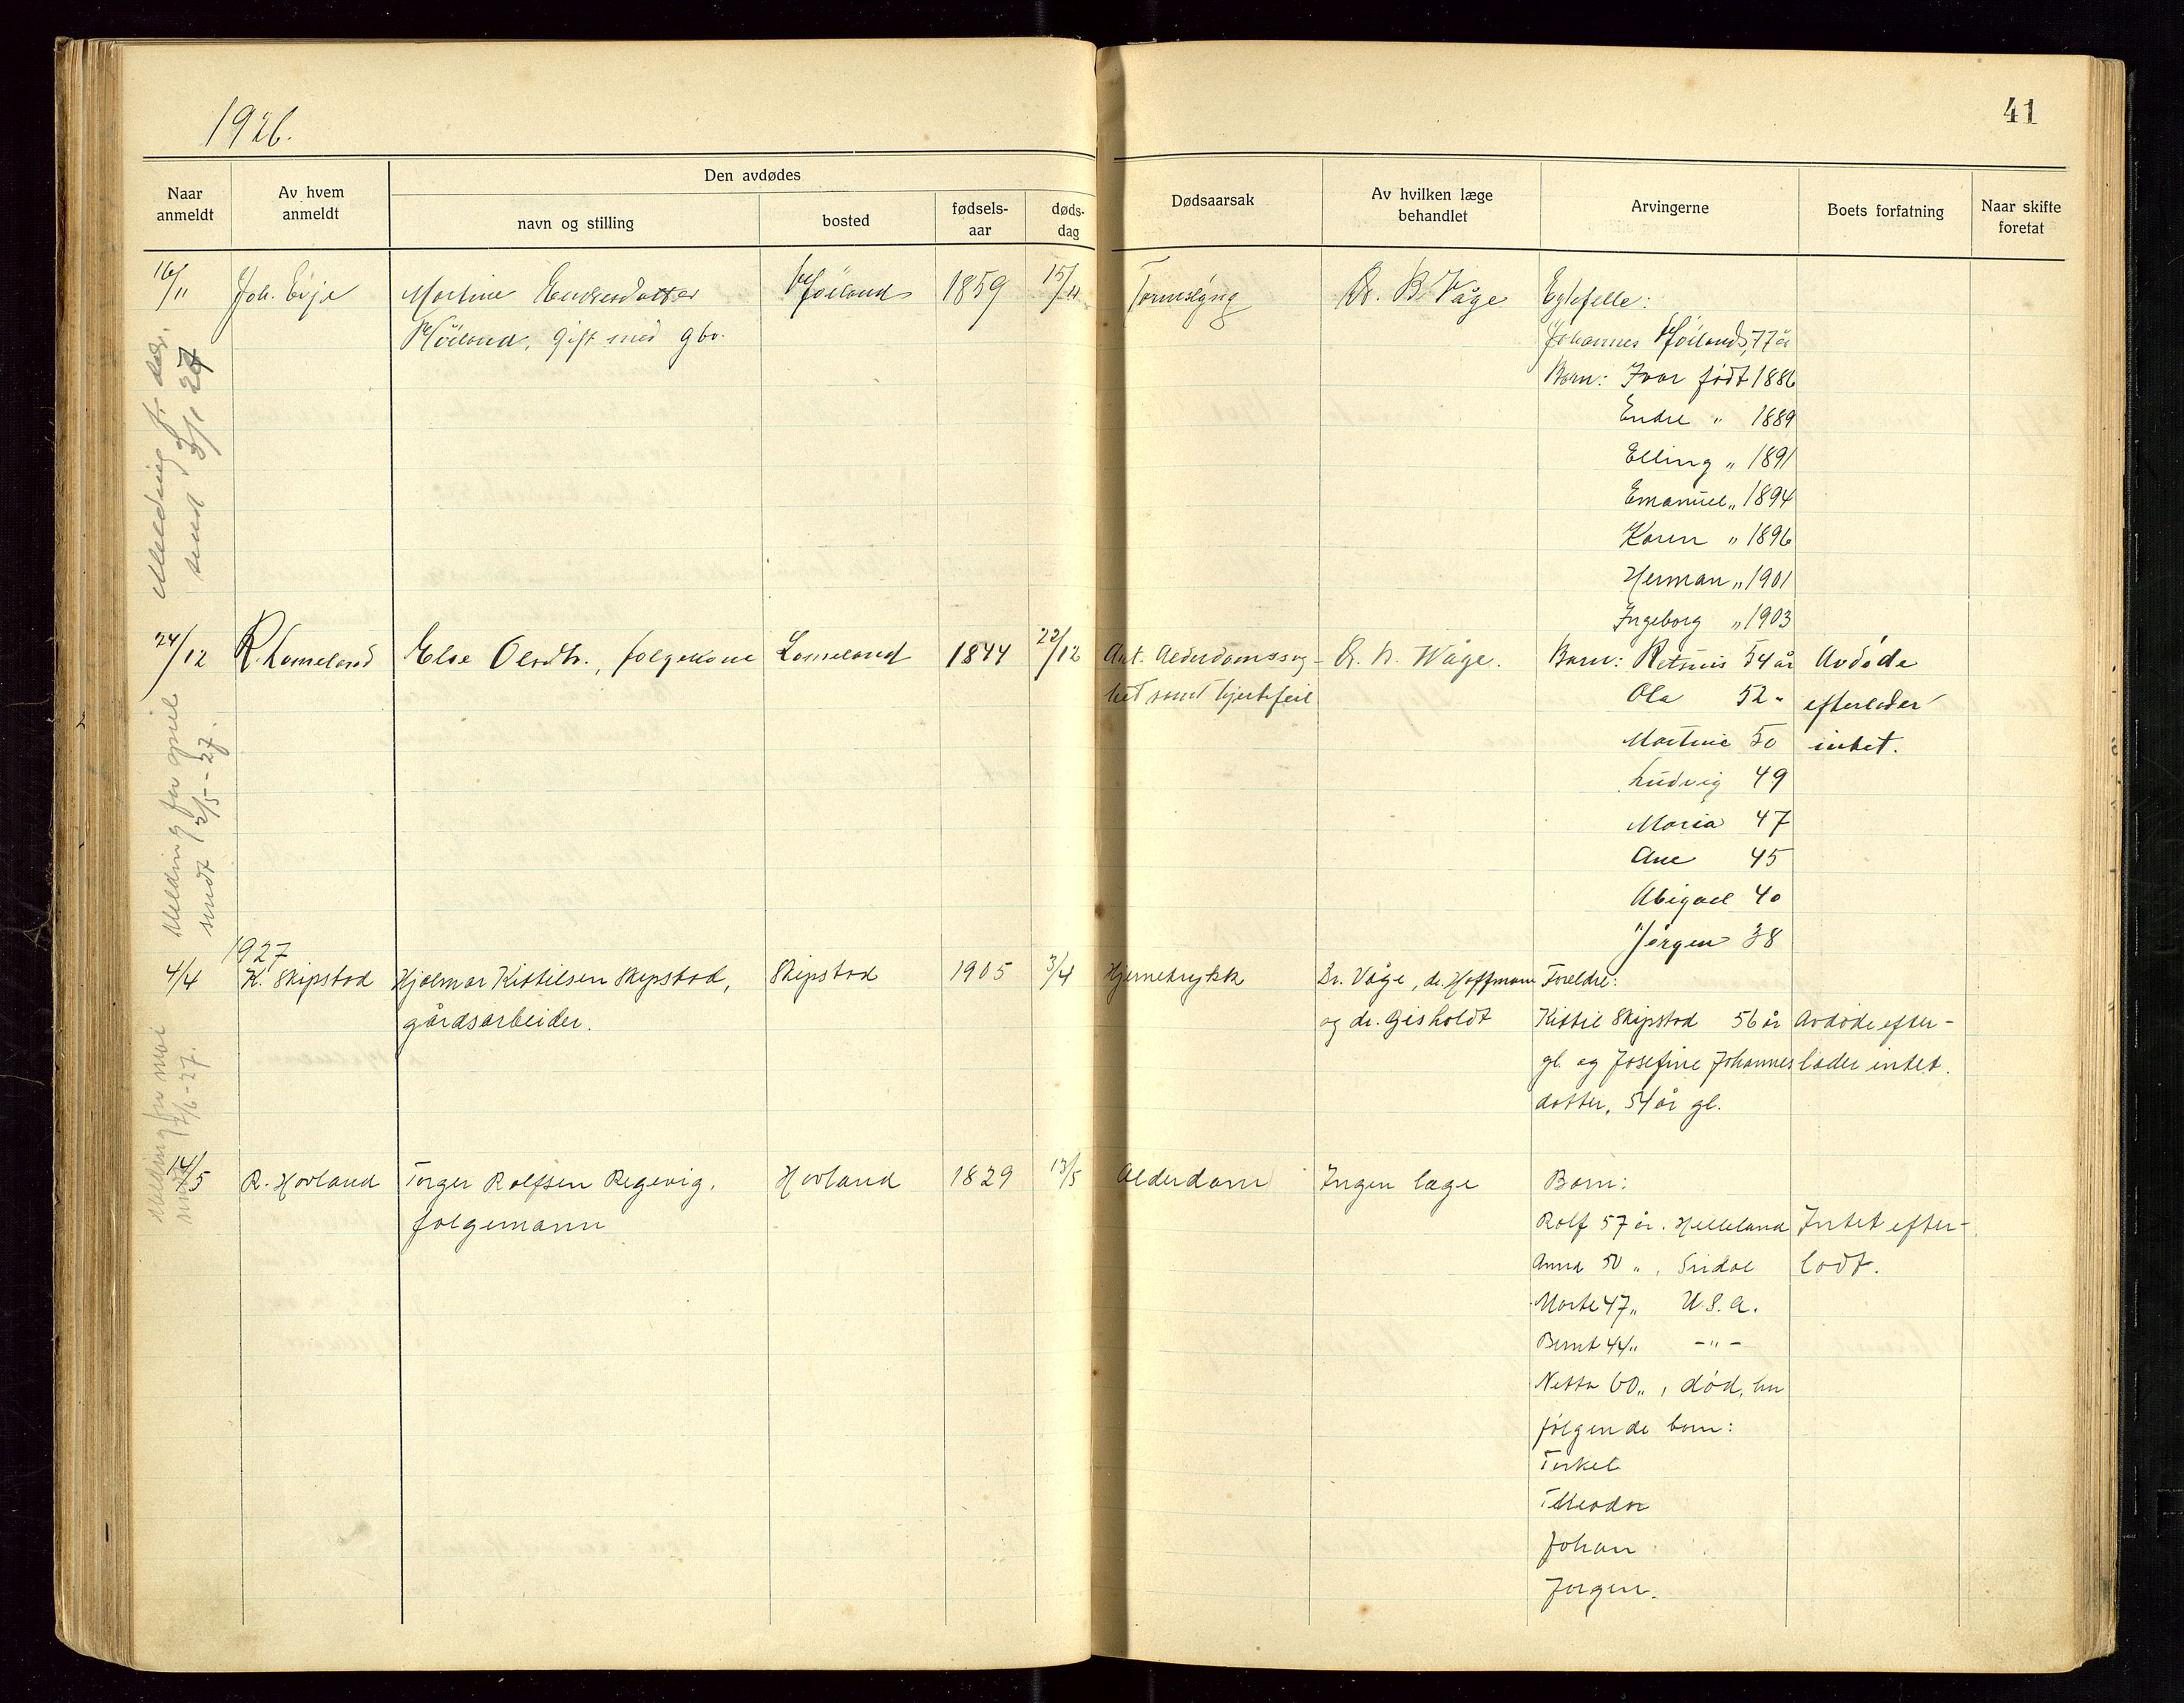 1926.
41
Naar anmeldt
Av hvem anmeldt
Den avdødes
navn og stilling
bosted
fødsels-aar
døds-dag
Dødsaarsak
Av hvilken læge behandlet
Arvingerne
Boets forfatning
Naar skifte foretat
16/11 Joh. Eije Martine Endresdatter Höiland 1859 15/11 Tarmslyng Dr. B. Våge Egtefelle:
Höiland, gift med gbr. Johannes Höiland, 77 år
Barn: Ivar født 1886
Endre " 1889
Elling " 1891
Emanuel " 1894
Karen " 1896
Herman " 1901
Ingeborg " 1903
Melding f. des.
send 3/1 27
24/12 R. Lomeland Else Olsdtr., folgekone Lomeland 1844 22/12 Ant. Alderdomssvag- Dr. N. Wåge. Barn: Retsius 54 år Avdøde
het samt hjertefeil Ola 52 " efterlader
Martine 50 intet.
Ludvig 49
Maria 47
Ane 45
Abigael 40
Jørgen 38
Melding for april
sendt 2/5-27.
1927
4/4 K. Skipstad Hjalmar Kittilsen Skipstad, Skipstad 1905 3/4 Hjernetrykk Dr. Våge, dr. Hoffmann Foreldre:
gårdsarbeider. og dr. Gisholdt Kittil Skipstad 56 år Avdøde efter-
gl. og Josefine Johannes lader intet.
datter, 54 år gl.
Melding for mai
sendt 7/6-27.
14/5 R. Hovland Torger Rolfsen Regevig, Hovland 1829 13/5 Alderdom Ingen læge Barn:
folgemann Rolf 57 år. Helleland Intet efter-
Anna 50 ", lodt.
Marte 47 " U.S.A.
Bernt 44 " -"-
Netta 60 ", död, har
følgende barn:
Terkel
Theodor
Johan
Jørgen.